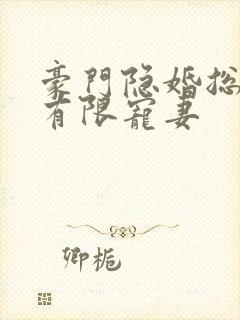 豪門隐婚总
有限寵妻
卿栀